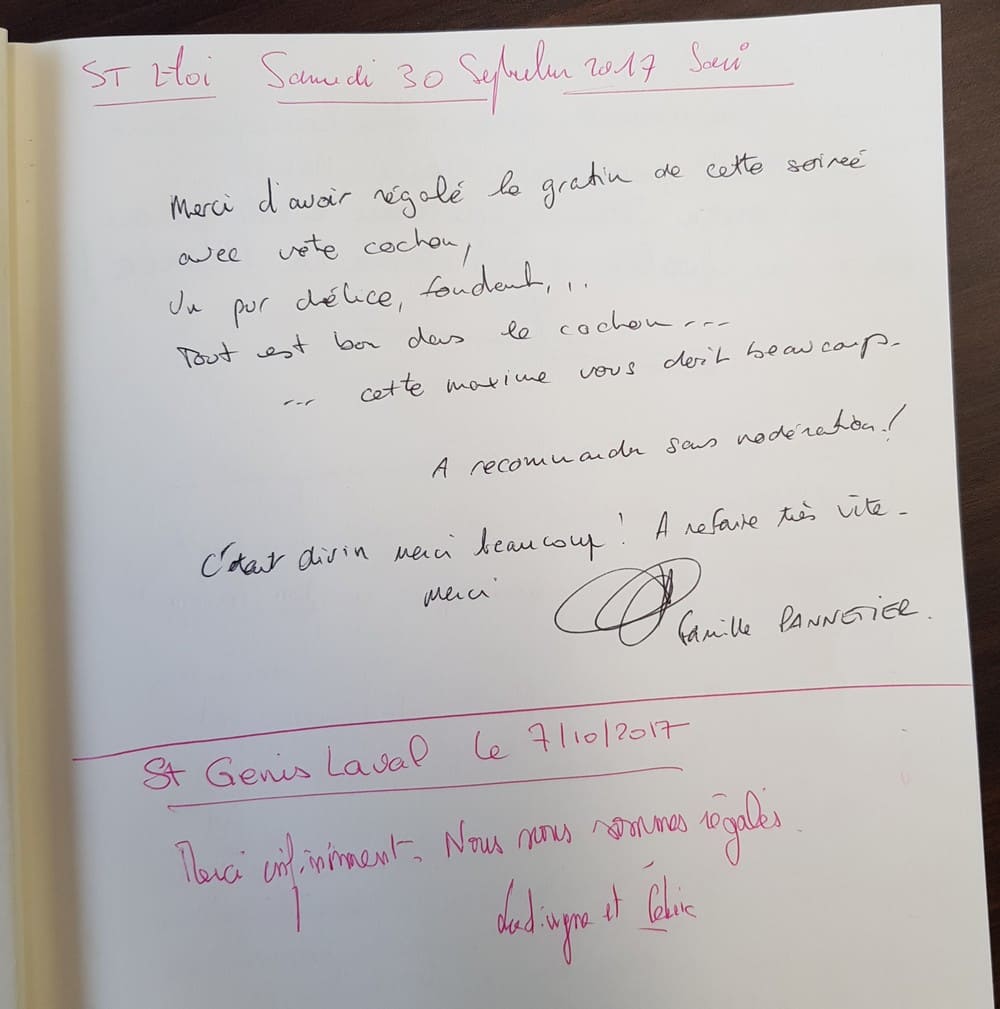 ST Eloi Samedi 30 Septembre 2017 Soir
Merci d'avoir régalé le gratin de cette soireé
avec vote cochon,
Un pur délice, fondant, ...
Tout est bon dans le cochon ---
--- cette maxime vous doit beaucoup-
A recommander sans modération!
C'était divin merci beaucoup! A refaire très vite-
merci
Famille PANNETIER.
St Genis Laval le 7/10/2017
Merci infiniment. Nous nous sommes régalés.
et